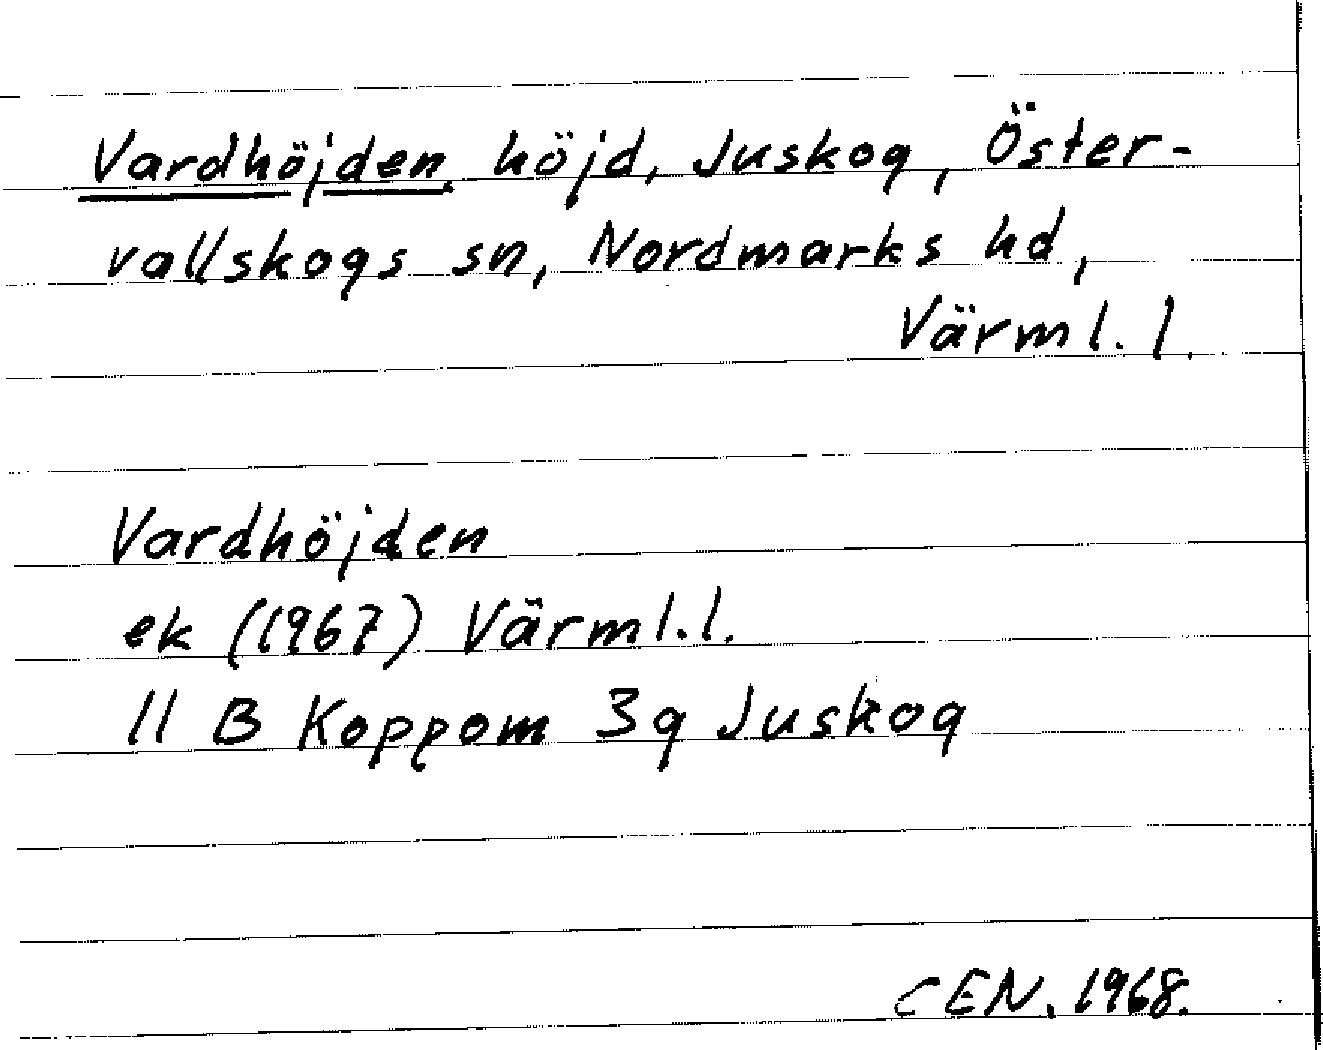 Vardhöjden, höjd, Juskog, Öster-
vallskogs sn, Nordmarks hd,
Värml. l.
Vardhöjden
ek (1967) Värml. l.
11 B Koppom 3g Juskog
CEN. 1968.